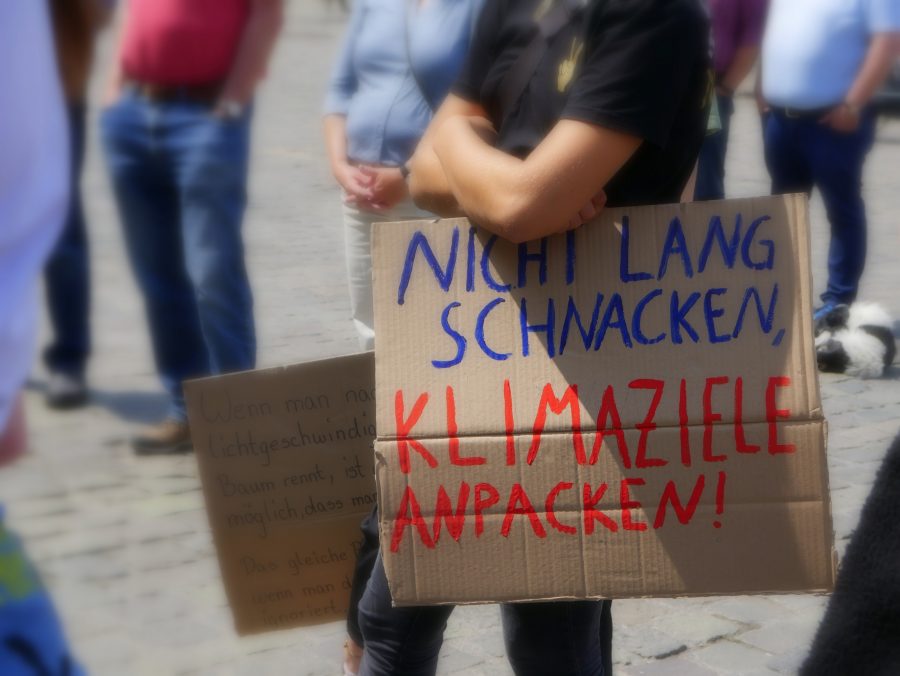 NICHT LANG
SCHNACKEN,
KLIMAZIELE
ANPACKEN!
Wenn man nac
lichtgeschwindig
Baum rennt, ist
möglich, dass man
Das gleiche P
wenn man d
ignoriert.